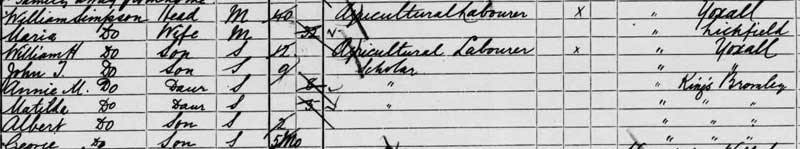 William Simpson Head M 40 Agricultural Labourer x " Yoxall
Maria Do Wife M 32 " Lichfield
William H Do Son S 12 Agricultural Labourer x " Yoxall
John T. Do Son S 9 Scholar " "
Annie M. Do Daur S 8 " " Kings Bromley
Matilda Do Daur S 5 " " " "
Albert Do Son S 2 " " "
George Do Son S 5Mo " " "